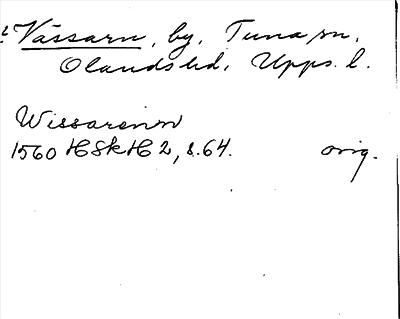 Vässarn, by, Tuna sn,
Olands hd, Upps. l.
Wissarenn
1560 HSkH 2, s. 64. orig.